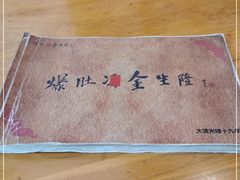 爆肚冯金生隆
大清光绪十九年